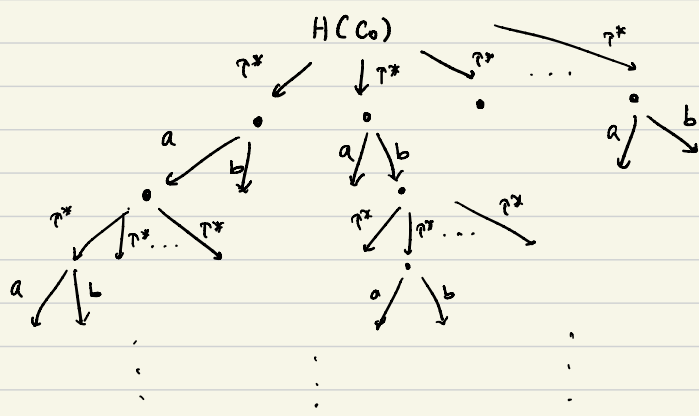 H(C₀)
τ* τ* τ* . . . τ*
a b a b a b
τ* τ* . . . τ* τ* τ* . . . τ*
a b a b